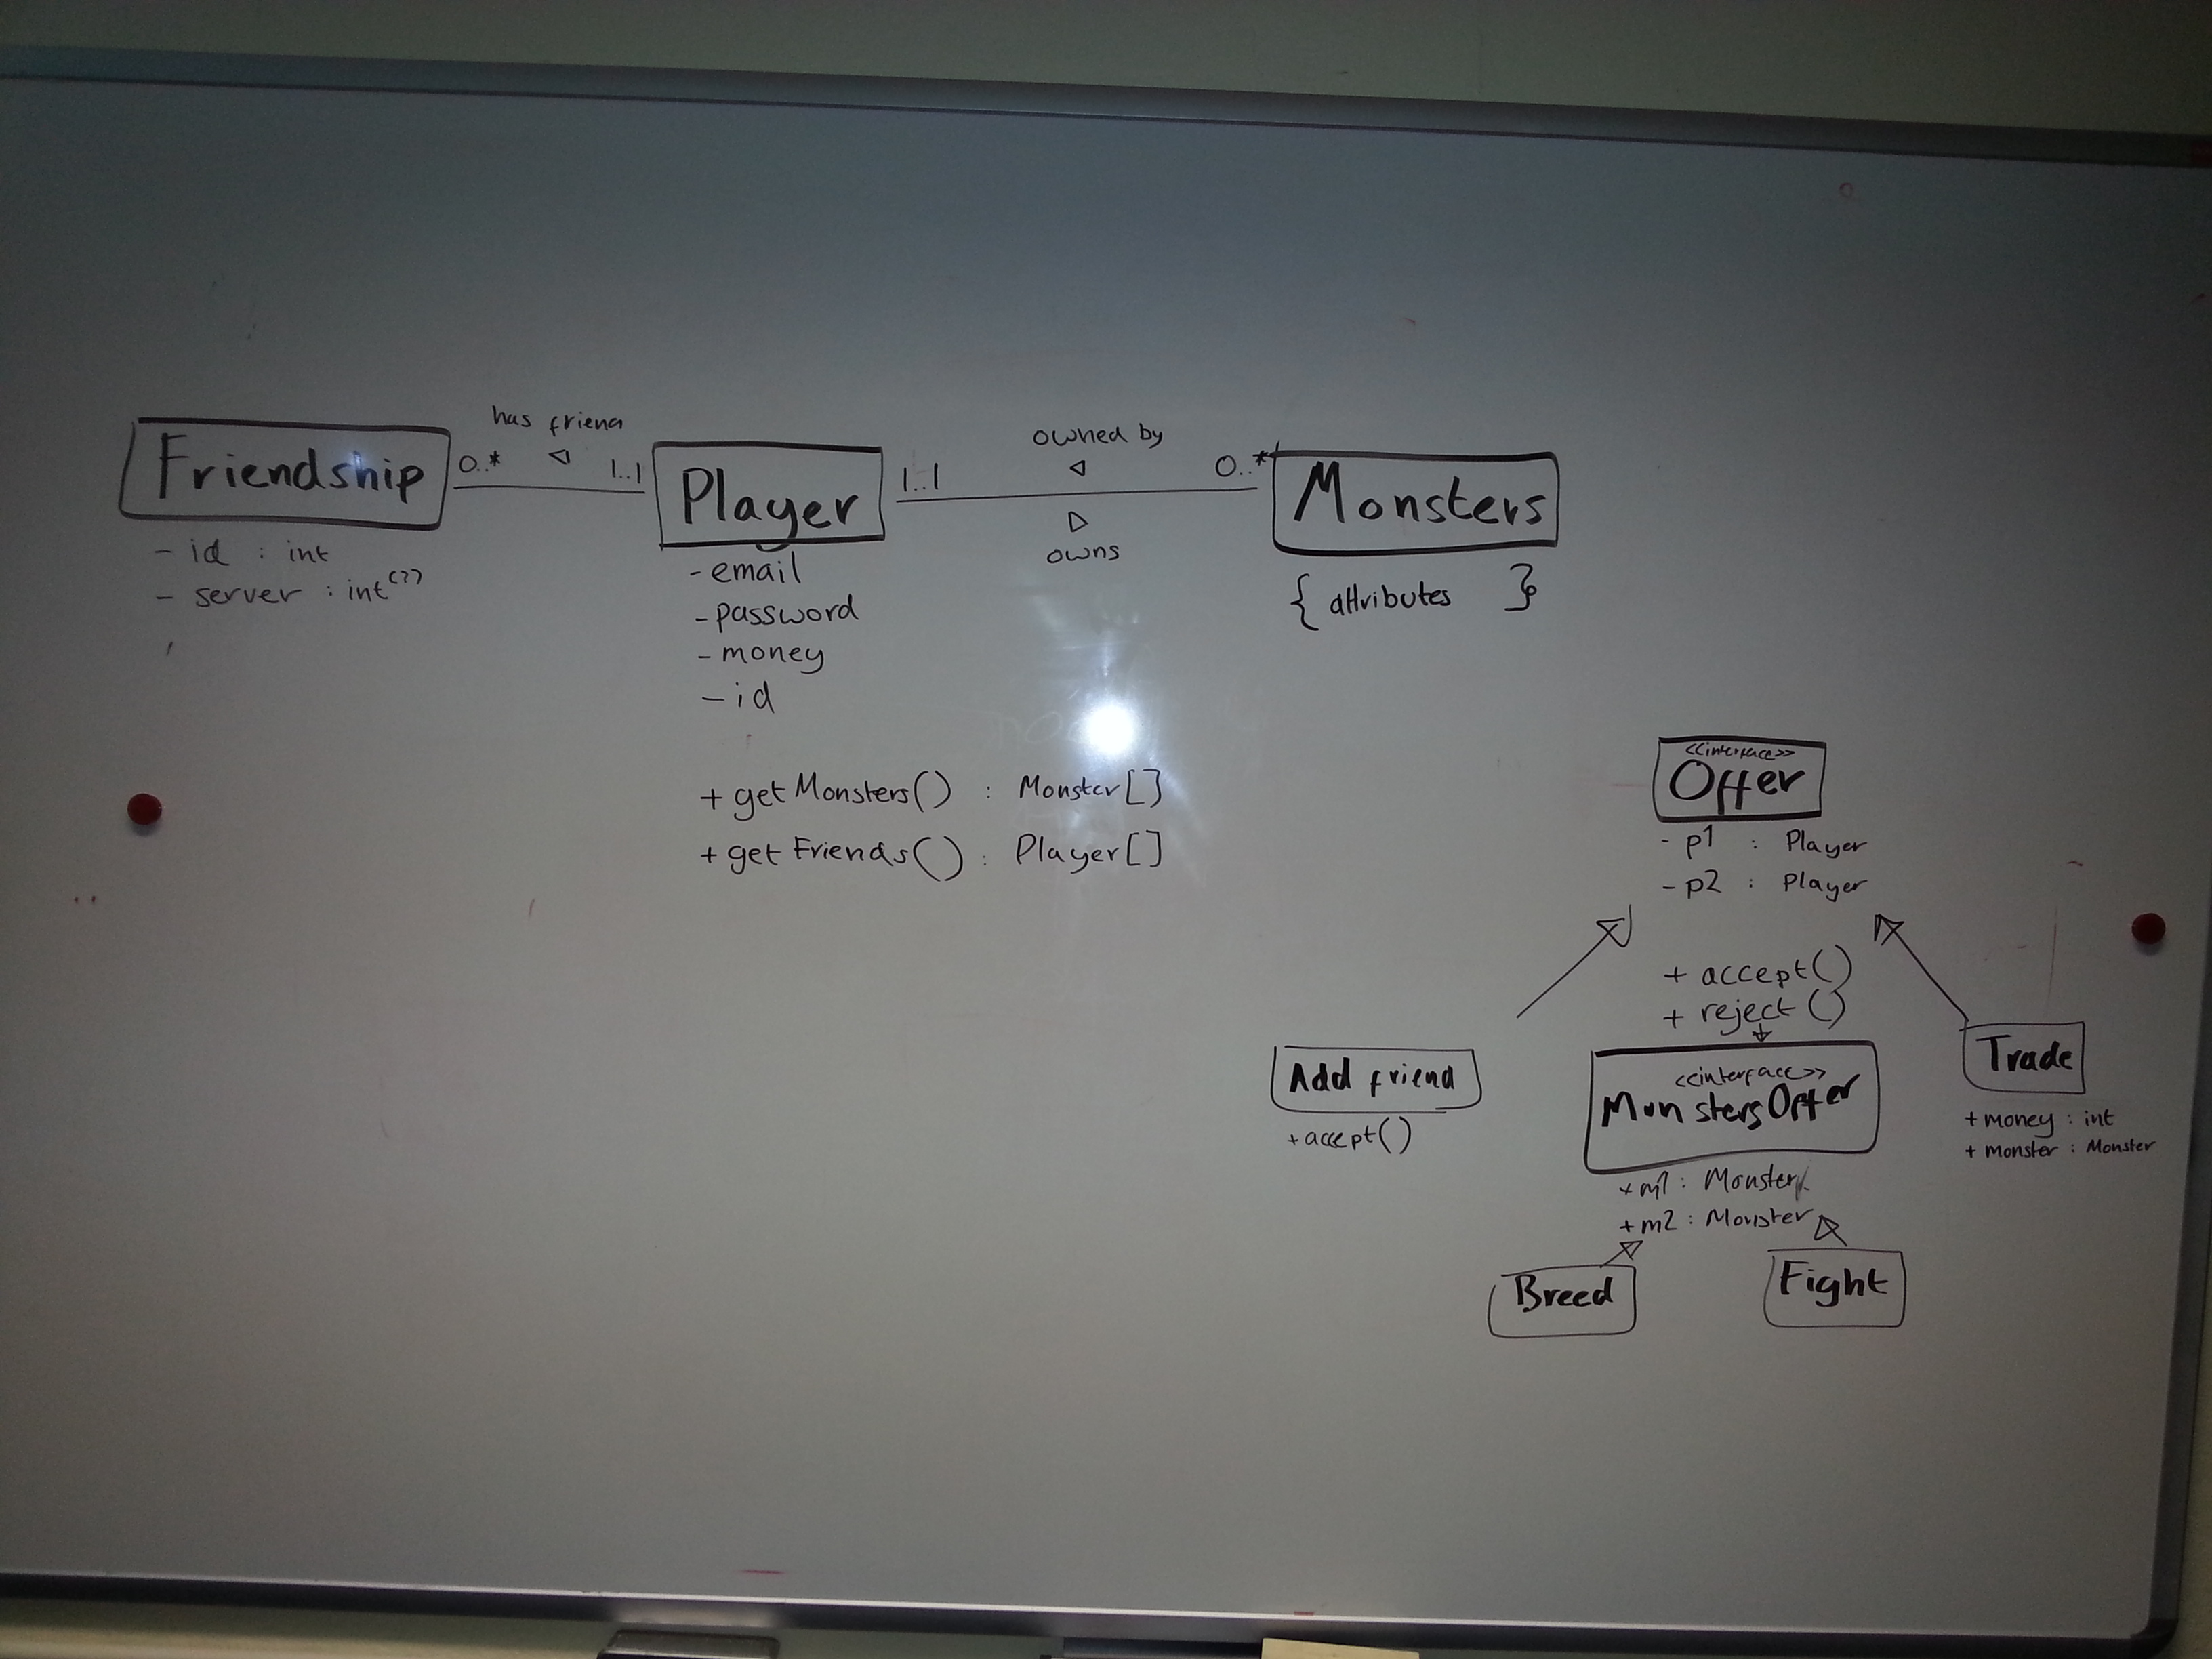 Friendship
- id : int
- server : int(??)
has friend
0..*
1..1
Player
- email
- password
- money
- id
+ getMonsters() : Monster[]
+ getFriends() : Player[]
owned by
1..1
0..*
owns
Monsters
{ attributes }
<<interface>>
Offer
- p1 : Player
- p2 : Player
+ accept()
+ reject()
Add friend
+ accept()
<<interface>>
MonstersOffer
+ m1 : Monster
+ m2 : Monster
Trade
+ money : int
+ monster : Monster
Breed
Fight